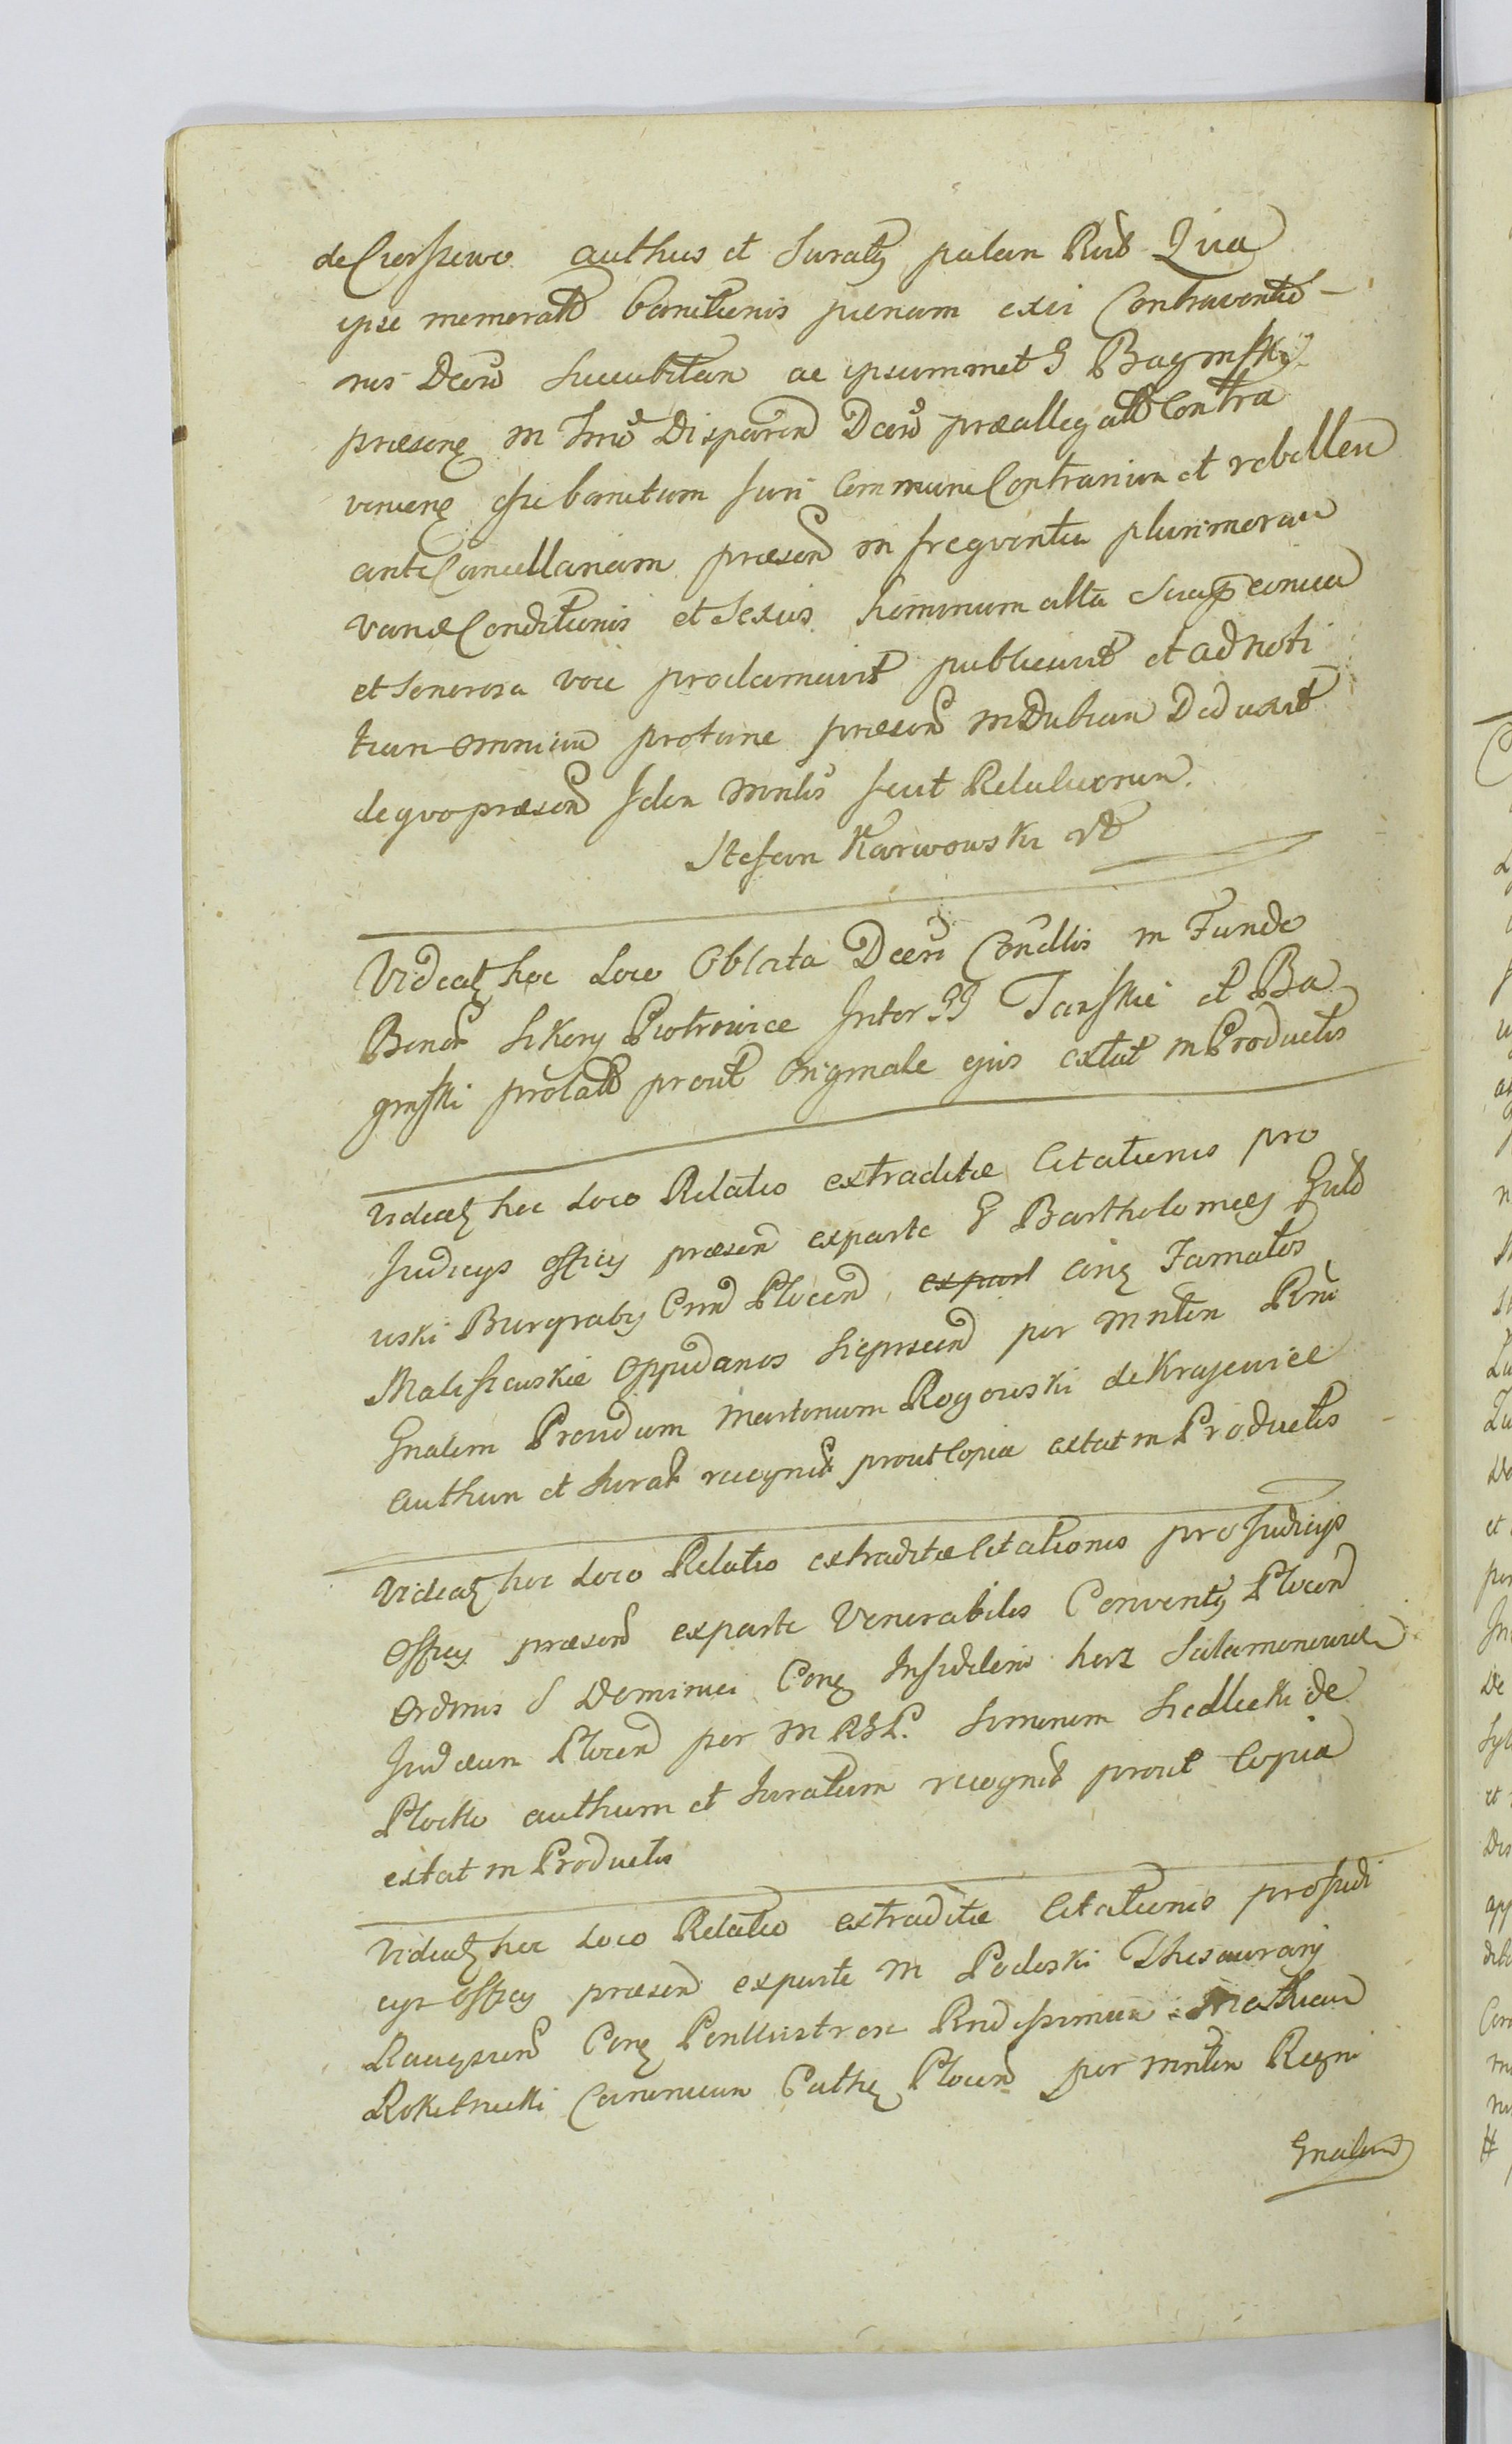 de Cierszewo authus et Juraty palam Rnit Quia
ipse memoratt banitionis poenam exvi Contraventio-
nis Decro succubitam ac ipsummet G Baginsky
præsenq in Decro præallegatt Contra
venienq esse banitum juri Communi Contrarium et rebellem
ante Cancellariam præsen in freqventia plurimorum
variæ Conditionis et Sexus hominum alta conica
et Sonorosa voce proclamavit publicavit et ad noti
tiam omnium protune præsen indubiam Deduxit
de qvo præsen fidem mnlis fecit Relationem.
Stefan Karwowski
Videatz hoc Loco Oblata Decri Condllis in Fundo
Bonor Sikory Piotrowice Inter GG Tanskie et Ba
ginski prolatt prout Originale ejus extat in Productis
Videatz hoc Loco Relatio extraditæ Citationis pro
Judicys officy præsen exparte G Bartholomey Gut
uski Burgraby Plocen, expart conq Famatos
Maliszewskie oppidanos Sieprscen per mnlem Rni
Gnalem Providum Martinum Rogowski de Krajewice
authum et Jurat recognit prout Copia extat in Productis
Videatz hoc Loco Relatio extraditæ Citationis pro Judicys
Officy præsen exparte Venerabilis Conventy Plocen
Ordinis S Dominici Conq Infidelem herz Salamonowicz
Judæum Plocen per M R G P. Simonem Siedlecki de
Plocko authum et Juratum recognit prout Copia
extat in Productis
Videatz hoc Loco Relatio extraditæ Citationis pro Judi
cys Officy præsen exparte M Podoski Thesaurary
Conq Perillustrem Rndissimum Mathiam
Rokitnicki Canonicum Cathq Plocen per mnlem Regni
Gnalem